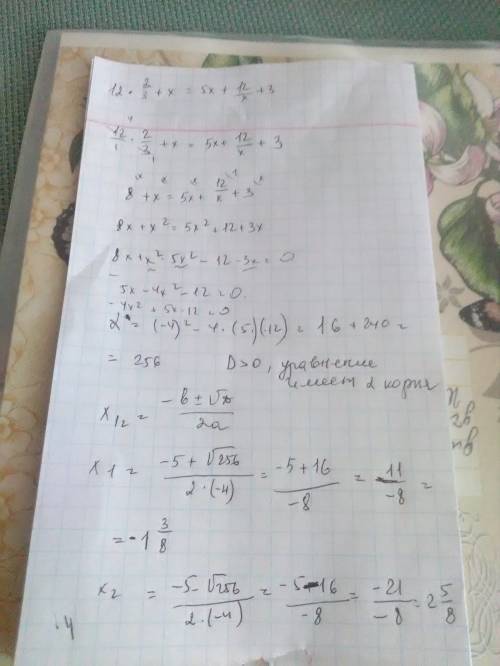 12 · 2/3 + x = 5x + 12/x + 3
12/1 · 2/3 + x = 5x + 12/x + 3
8 + x = 5x + 12/x + 3
8x + x² = 5x² + 12 + 3x
8x + x² - 5x² - 12 - 3x = 0
5x - 4x² - 12 = 0.
-4x² + 5x - 12 = 0
= (-4)² - 4 · (5)(-12) = 16 + 240 =
= 256 D > 0, уравнение
имеет 2 корня
x₁₂ = (-b ± √D)/2a
x1 = (-5 + √256)/(2 · (-4)) = (-5 + 16)/-8 = 11/-8 =
= -1 3/8
x2 = (-5 - √256)/(2 · (-4)) = (-5 - 16)/-8 = -21/-8 = 2 5/8